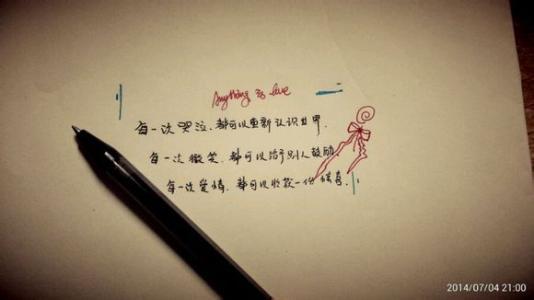 Anything is love
每一次哭泣、都可以重新认识世界.
每一次微笑、都可以给予别人鼓励
每一次爱情、都可以收获一份
2014/07/04 21:00